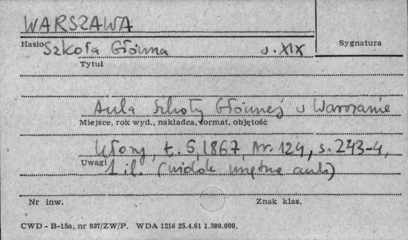 WARSZAWA
Hasło Szkoła Główna w. XIX
Sygnatura
Tytuł
Aula Szkoły Głównej w Warszawie
Miejsce, rok wyd., nakładca, format, objętość
Kłosy, t. 5, 1867, nr. 124, s. 243-4,
Uwagi
1 il. (widok wnętrza auli)
Nr inw.
Znak klas.
CWD - B-15a, nr 937/ZW/P. WDA 1216 25.4.61 1.380.000.